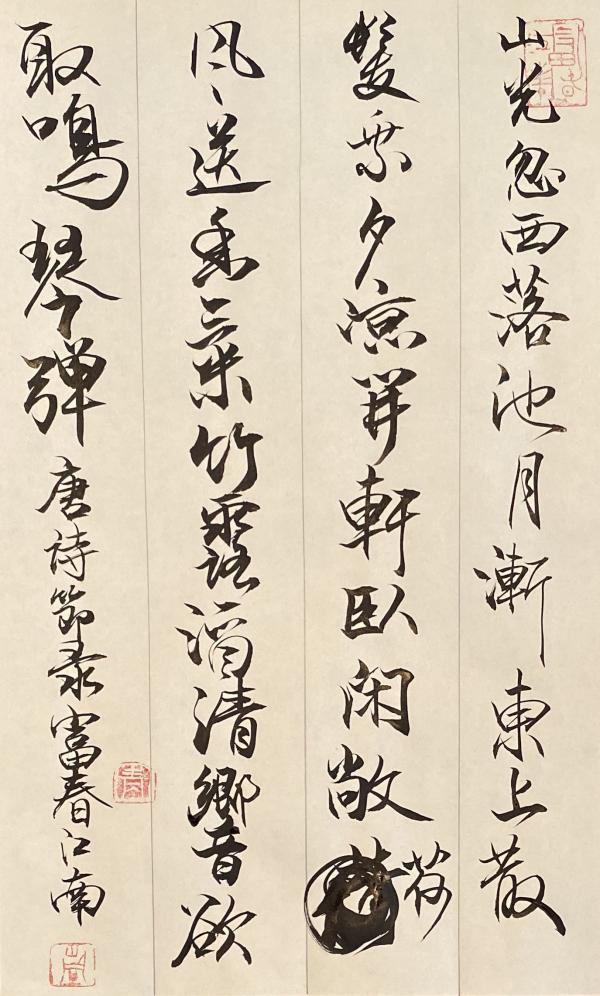 山光忽西落池月漸東上散
髮乘夕涼開軒臥閑敞荷
風送香氣竹露滴清響欲
取鳴琴彈 唐詩節录富春江南